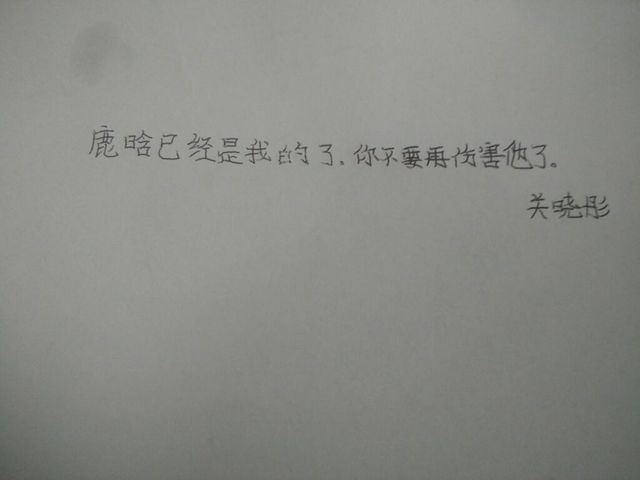 鹿晗已经是我的了,你不要再伤害他了。
关晓彤